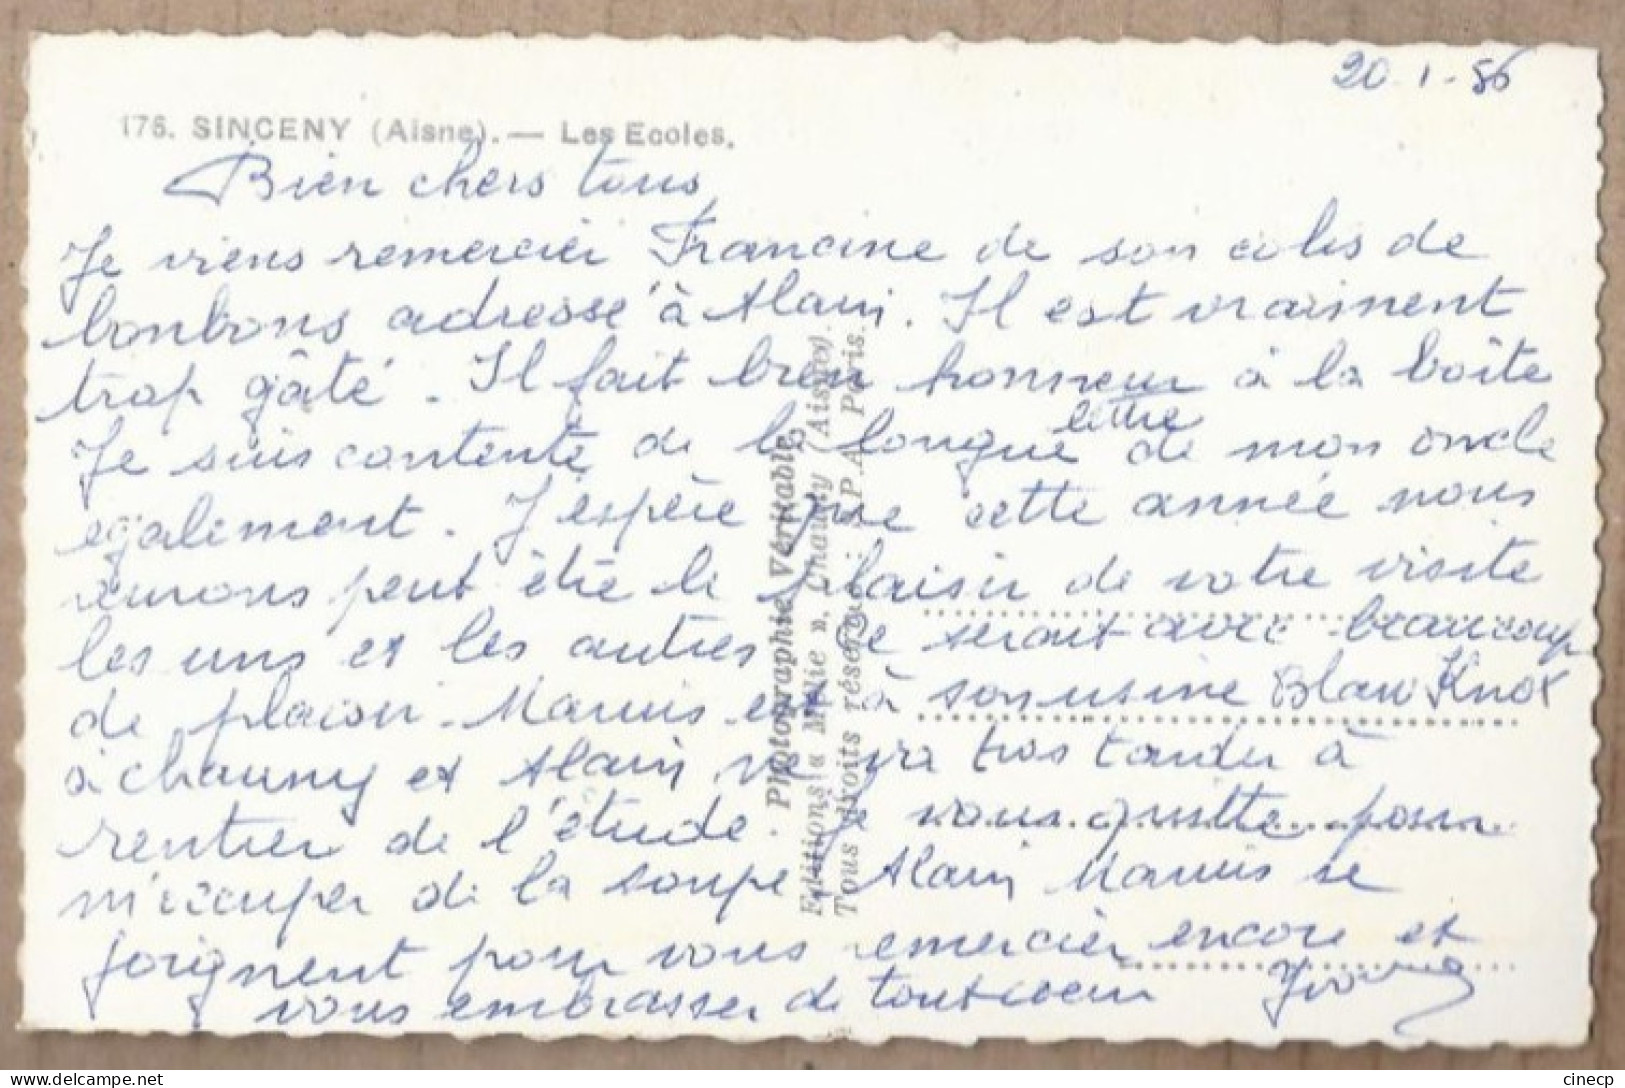 20-1-56
176. SINCENY (Aisne). — Les Ecoles.
Bien chers tous
Je viens remercier Francine de son colis de
bonbons adressé à Alain. Il est vraiment
trop gâté. Il fait bien honneur à la boîte
Je suis contente de la longue lettre de mon oncle
également. J'espère que cette année nous
aurons peut être le plaisir de votre visite
les uns et les autres. Ce serait avec beaucoup
de plaisir. Marius est à son usine Blaw Knox
à Chauny et Alain ne va pas tarder à
rentrer de l'étude. Je vous quitte pour
m'occuper de la soupe Alain Marius se
joignent pour vous remercier encore et
vous embrasser de tout coeur
Photographie Véritable
Editions « Mélie », Chauny (Aisne).
Tous droits réservés S.P.A. Paris.
cinecp